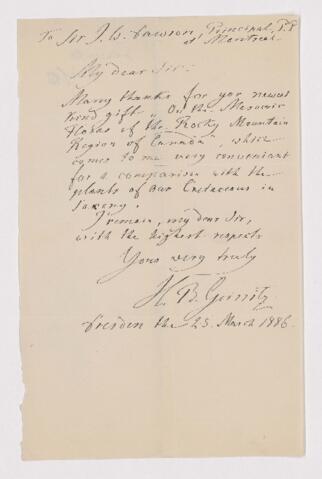 To Sir J. W. Dawson, Principal,
at Montreal.
My dear Sir:
Many thanks for yor newest
kind gift „On the Mesozoic
Floras of the Rocky Mountain
Region of Canada", which
comes to me very convenient
for a comparison with the
plants of our Cretaceous in
Saxony.
I remain, my dear Sir,
with the highest respects
Yours very truly
H. B. Geinitz
Dresden the 25. March 1886.